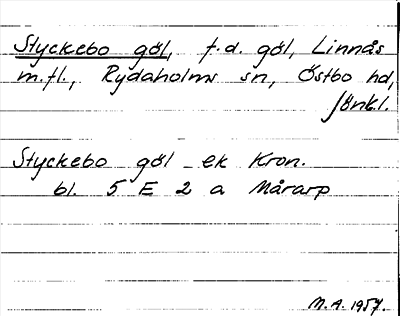 Styckebo göl, f.d. göl, Linnås
m.fl., Rydaholms sn, Östbo hd,
Jönk.l.
Styckebo göl ek Kron.
bl. 5 E 2 a Mårarp
M.A. 1957.